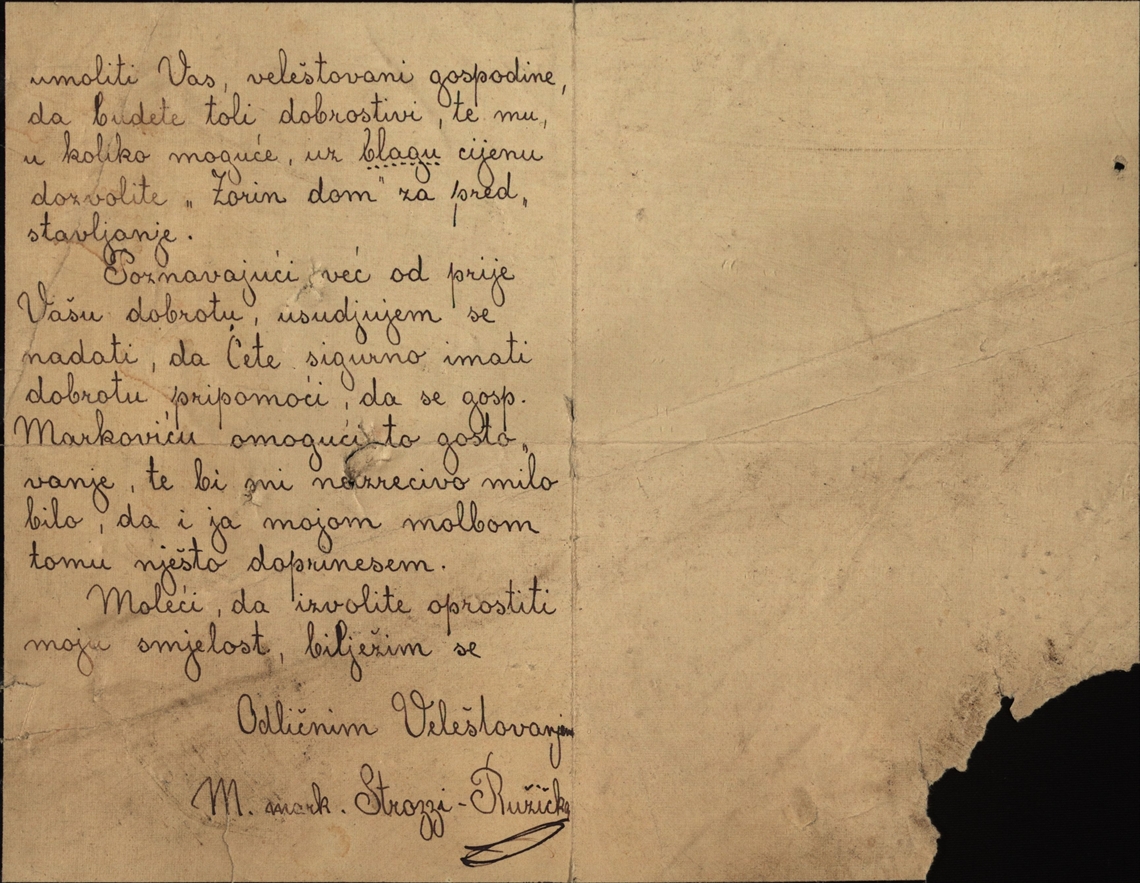 umoliti Vas, veleštovani gospodine,
da budete toli dobrostivi, te mu,
u koliko moguće, uz blagu cijenu
dozvolite „Zorin dom" za pred„
stavljanje.
Poznavajući već od prije
Vašu dobrotu, usudjujem se
nadati, da Ćete sigurno imati
dobrotu pripomoći, da se gosp.
Markoviću omogući to gosto„
vanje, te bi mi neizrecivo milo
bilo, da i ja mojom molbom
tomu nješto doprinesem.
Moleći, da izvolite oprostiti
moju smjelost, bilježim se
Odličnim Veleštovanjem
M. mark. Strozzi-Ružička